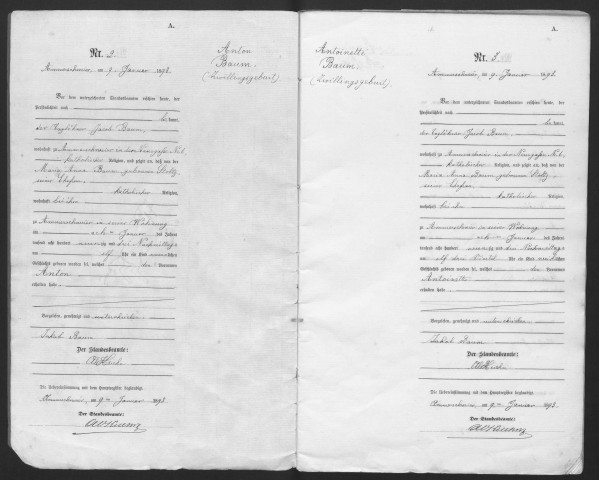 A.
Nr. 2
Anton
Baum
(Zwillingsgeburt)
Ammerschweier, am 9ten Januar 1893.
Vor dem unterzeichneten Standesbeamten erschien heute, der
Persönlichkeit nach
kannt
der Taglöhner Jakob Baum
wohnhaft zu Ammerschweier
katholischer Religion, und zeigte an, daß von der
Maria Anna Baum geborenen Stoltz,
seiner Ehefrau
katholischer Religion,
wohnhaft bei ihm
zu Ammerschweier in seiner Wohnung
am achten Januar des Jahres
tausend acht hundert neunzig und drei Nachmittags
um elf Uhr ein Kind männlichen
Geschlechts geboren worden sei, welches den Vornamen
Anton
erhalten habe.
Vorgelesen, genehmigt und unterschrieben
Jakob Baum
Der Standesbeamte:
Die Uebereinstimmung mit dem Hauptregister beglaubigt
Ammerschweier, am 9ten Januar 1893.
Der Standesbeamte:
A.
Antoinette
Baum.
(Zwillingsgeburt)
Nr. 3
Ammerschweier, am 9ten Januar 1893.
Vor dem unterzeichneten Standesbeamten erschien heute, der
Persönlichkeit nach
kannt
der Taglöhner Jakob Baum
wohnhaft zu Ammerschweier
katholischer Religion, und zeigte an, daß von der
Maria Anna Baum geborenen Stoltz,
seiner Ehefrau
katholischer Religion,
wohnhaft bei ihm
zu Ammerschweier in seiner Wohnung
am achten Januar des Jahres
tausend acht hundert neunzig und drei Nachmittags
um elf Uhr ein Kind weiblichen
Geschlechts geboren worden sei, welches den Vornamen
Antoinette
erhalten habe.
Vorgelesen, genehmigt und unterschrieben
Jakob Baum
Der Standesbeamte:
Die Uebereinstimmung mit dem Hauptregister beglaubigt
Ammerschweier, am 9ten Januar 1893.
Der Standesbeamte: